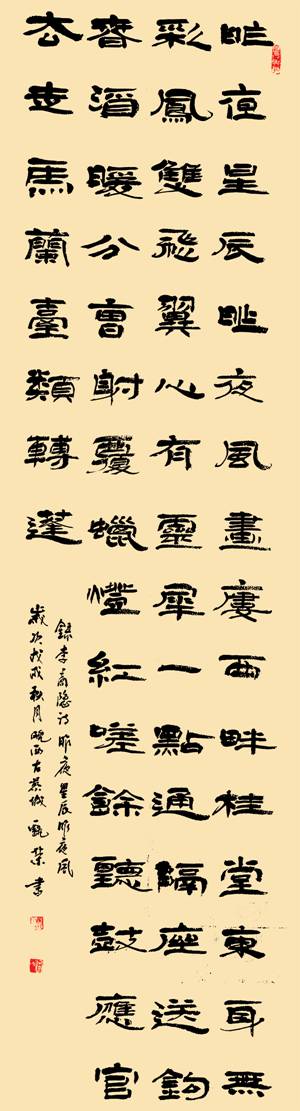 昨夜星辰昨夜風畫廔西畔桂堂東身無
彩鳳雙飛翼心有靈犀一點通隔座送鉤
春酒暖分曹射覆蠟燈紅嗟餘聽鼓應官
去走馬蘭臺類轉蓬
錄李商隱詩昨夜星辰昨夜風
歲次戊戌秋月皖西古蓼城甄書